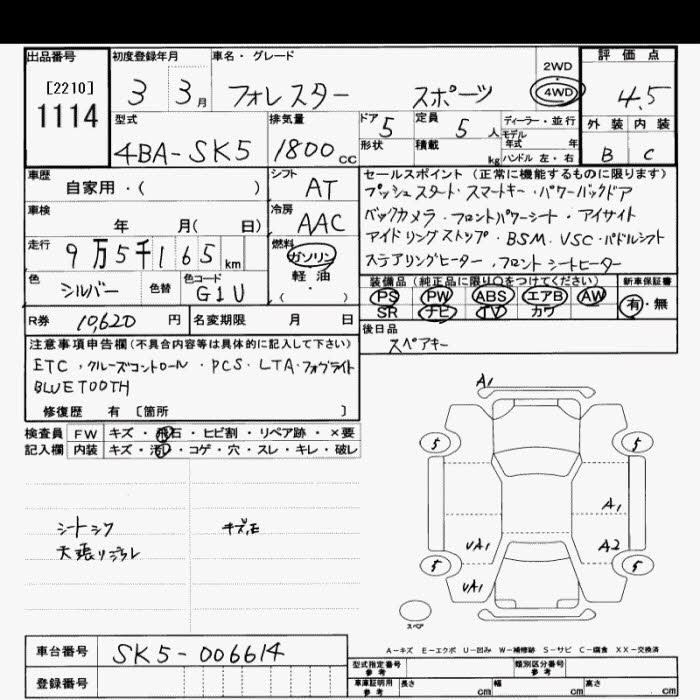 出品番号 初度登録年月 車名・グレード 2WD 4WD 評価点
[2210] 1114 3 3月 フォレスター スポーツ 4.5
型式 排気量 ドア 定員 ディーラー・並行 外装 内装
4BA-SK5 1800cc 5 5人 モデル年式 年 B C
形状 積載 kg ハンドル 左・右
車歴 シフト セールスポイント (正常に機能するものに限ります)
自家用・( ) AT プッシュスタート・スマートキー・パワーバックドア
車検 冷房 バックカメラ・フロントパワーシート・アイサイト
年 月( 日) AAC アイドリングストップ・BSM.VSC・パドルシフト
走行 燃料 ステアリングヒーター・フロントシートヒーター
9万5千165km ガソリン 軽油 ・( )
装備品 (純正品に限り○をつけてください) 新車保証書
色 色替 色コード PS PW ABS エアB AW 有・無
シルバー G1U SR ナビ TV カワ
R券 10,620円 名変期限 月 日 後日品
スペアキー
注意事項申告欄(不具合内容等は具体的に記入して下さい)
ETC・クルーズコントロール・PCS・LTA・フォグライト
BLUETOOTH
修復歴 有 [箇所 ]
検査員 FW キズ・飛石・ヒビ割・リペア跡・×要
記入欄 内装 キズ・汚レ・コゲ・穴・スレ・キレ・破レ
A1
5 5
シートシワ キズ、凹 A1
UA1 A2
5 5
UA1
スペア
A-キズ E-エクボ U-凹み W-補修跡 S-サビ C-腐食 XX-交換済
車台番号 SK5-006614
型式指定番号 参考 類別区分番号 参考
登録番号 車庫証明用 参考 長さ cm 幅 cm 高さ cm